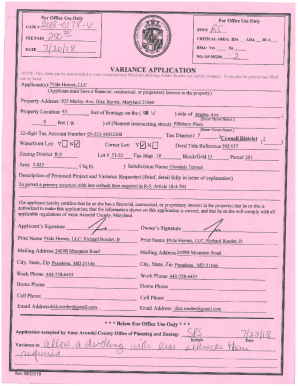 For Office Use Only
CASE # 2018-0178-V
FEE PAID 250.00
DATE 7/20/18
For Office Use Only
ZONE R5
CRITICAL AREA: IDA LDA RCA
BMA: Yes No
NO. OF SIGNS 2
VARIANCE APPLICATION
Applicant(s): Pride Homes, LLC
(Applicant must have a financial, contractual, or proprietary interest in the property)
Property Address: 825 Marley Ave, Glen Burnie, Maryland 21060
Property Location: 45 feet of frontage on the side of Marley Ave
(Enter Street Name)
0 feet of (Nearest intersecting street) Pillsbury Place
(Enter Street Name)
12-digit Tax Account Number Tax District 5 Council District
Waterfront Lot: Y N Corner Lot: Y N Deed Title Reference
Zoning District R-5 Lot # 51-53 Tax Map 10 Block/Grid Parcel 261
Area 5,625 (Sq Ft. Subdivision Name Glendale Terrace
Description of Proposed Project and Variance Requested (Brief, detail fully in letter of explanation)
To permit a primary structure with less setback than required in R-5, Article 18-4-701
The applicant hereby certifies that he or she has a financial, contractual, or proprietary interest in the property; that he or she is
authorized to make this application; that the information shown on this application is correct; and that he or she will comply with all
applicable regulations of Anne Arundel County, Maryland.
Applicant's Signature
Owner's Signature
Print Name Pride Homes, LLC, Richard Roeder, Jr
Print Name Pride Homes, LLC, Richard Roeder, Jr
Mailing Address 2409B Mountain Road
Mailing Address 2409B Mountain Road
City, State, Zip Pasadena, MD 21146
City, State, Zip Pasadena, MD 21146
Work Phone 443-738-6455
Work Phone 443-738-6455
Home Phone
Home Phone
Cell Phone
Cell Phone
Email Address
Email Address
*** Below For Office Use Only ***
Application accepted by Anne Arundel County Office of Planning and Zoning: 7/23/18
Initials Date
Variance to allow a dwelling with less setbacks than
required